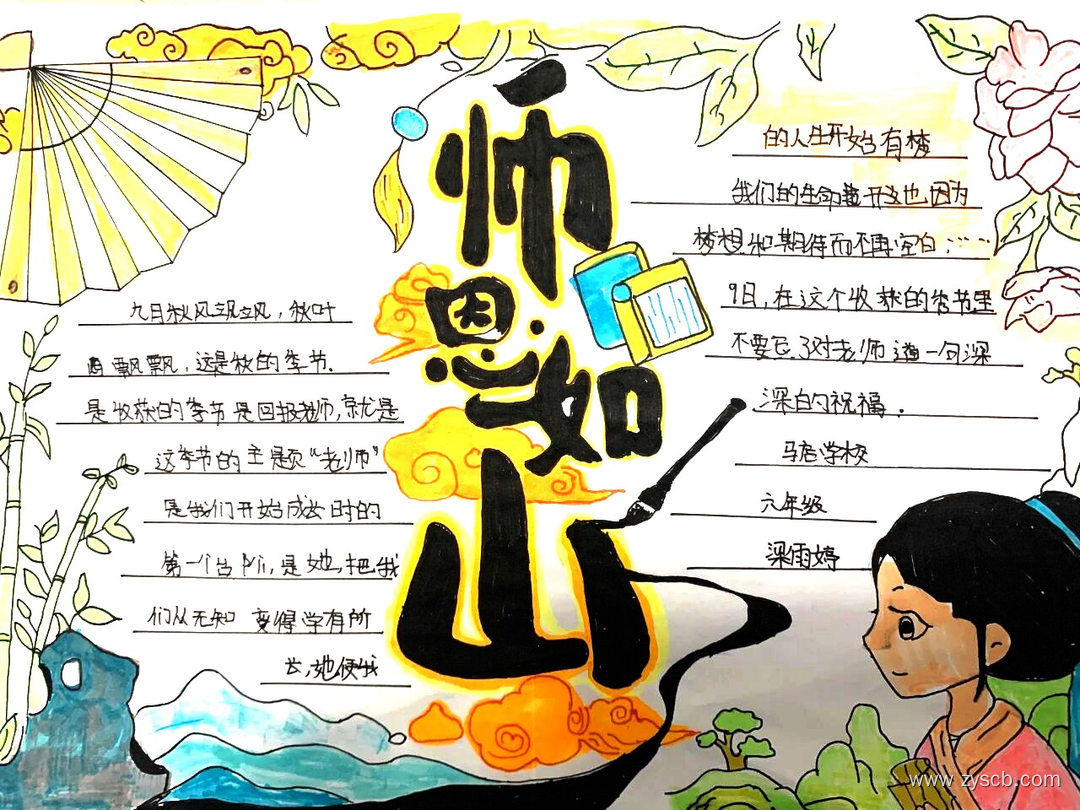 师恩如山
九月秋风飒飒，秋叶
飘飘，这是秋的季节.
是收获的季节是回报老师,就是
这季节的主题"老师"
是我们开始成长时的
第一个台阶,是她,把我
们从无知 变得学有所
长,她使我
的人生开始有梦
我们的生命
开这也,因为
梦想和期待而不再空白……
9月,在这个收获的季节里
不要忘了对老师道一句深
深的祝福.
马启学校
六年级
梁雨婷
www.zyscb.com